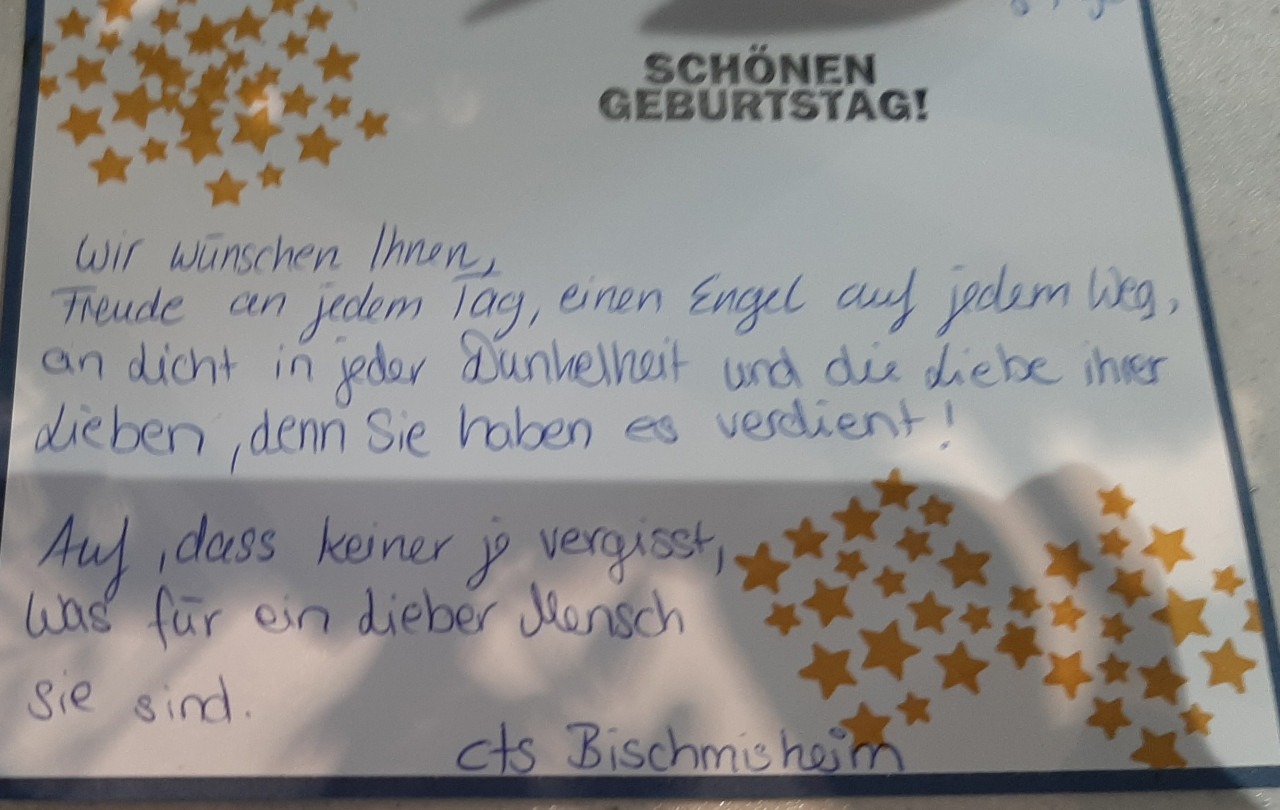 SCHÖNEN
GEBURTSTAG!
Wir wünschen Ihnen,
Freude an jedem Tag, einen Engel auf jedem Weg,
ein Licht in jeder Dunkelheit und die Liebe ihrer
Lieben, denn Sie haben es verdient!
Auf, dass keiner je vergisst,
Was für ein Lieber Mensch
Sie sind.
cts Bischmisheim